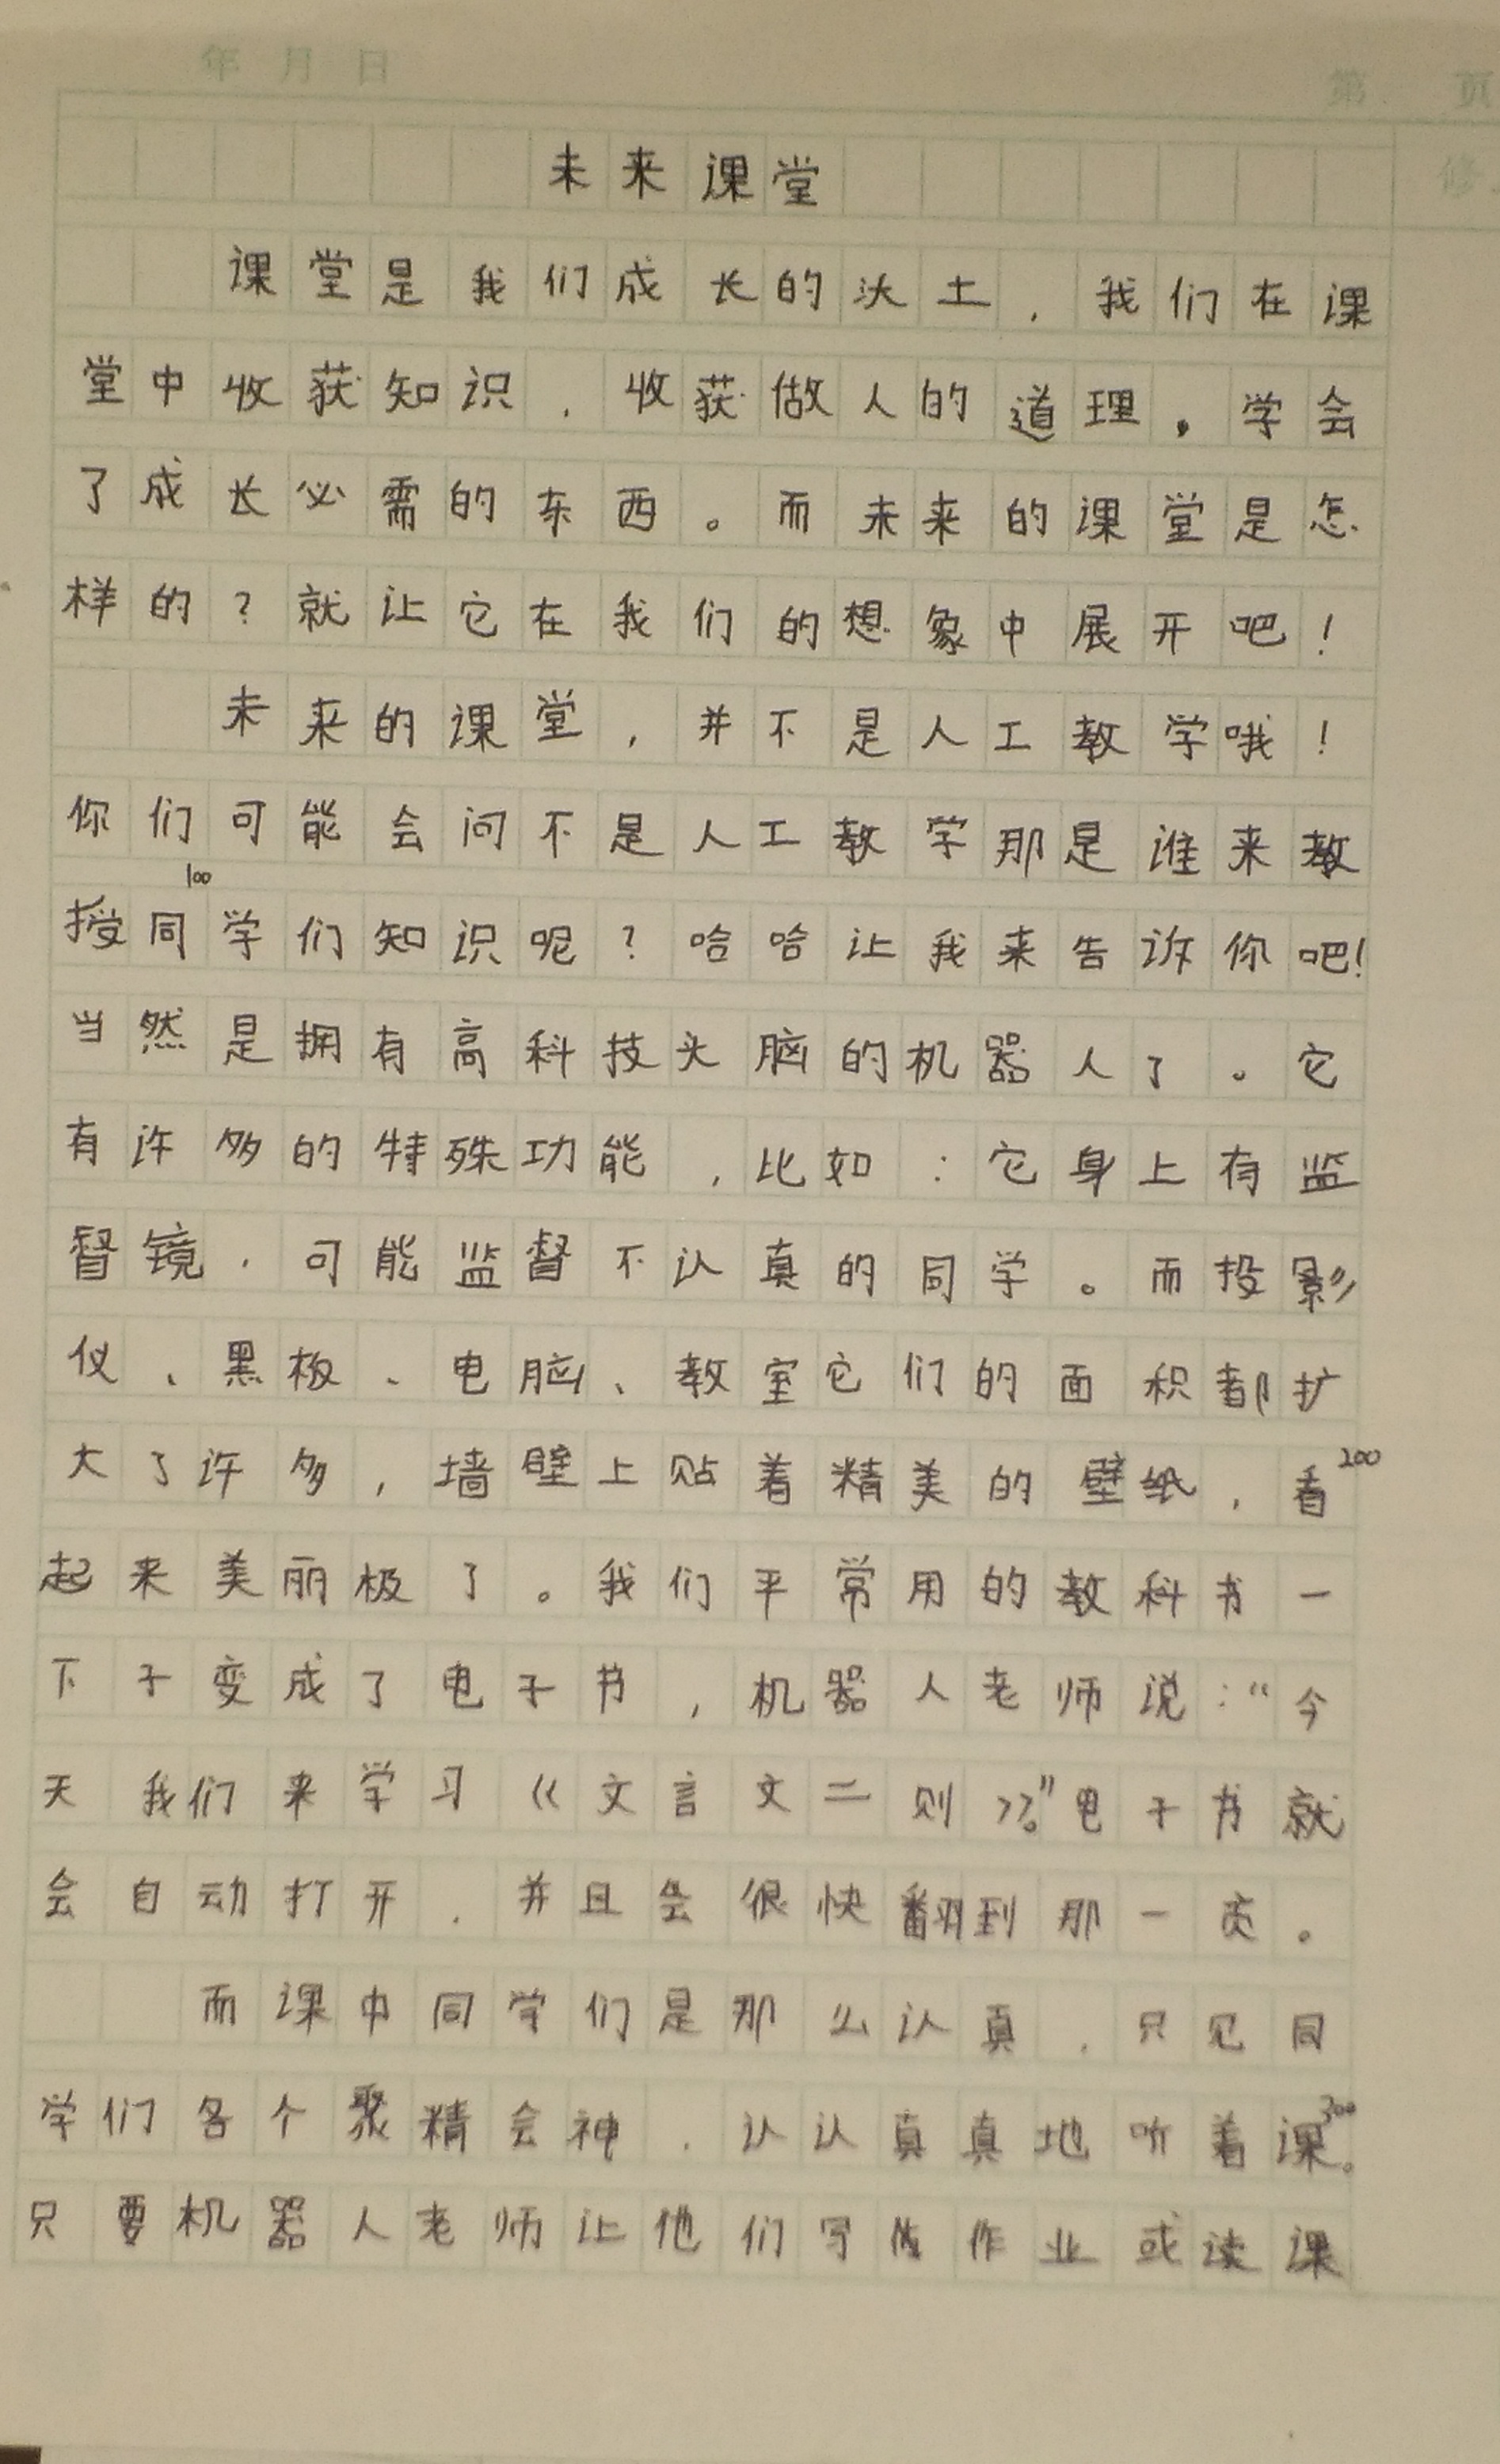 年 月 日
第 页
修
未来课堂
课堂是我们成长的沃土，我们在课
堂中收获知识，收获做人的道理，学会
了成长必需的东西。而未来的课堂是怎
样的？就让它在我们的想象中展开吧！
未来的课堂，并不是人工教学哦！
你们可能会问不是人工教学那是谁来教
100
授同学们知识呢？哈哈让我来告诉你吧！
当然是拥有高科技头脑的机器人了。它
有许多的特殊功能，比如：它身上有监
督镜，可能监督不认真的同学。而投影
仪、黑板、电脑、教室它们的面积都扩
大了许多，墙壁上贴着精美的壁纸，看
200
起来美丽极了。我们平常用的教科书一
下子变成了电子书，机器人老师说：“今
天我们来学习《文言文二则》。”电子书就
会自动打开，并且会很快翻到那一页。
而课中同学们是那么认真，只见同
学们各个聚精会神，认认真真地听着课。
300
只要机器人老师让他们写作业或读课